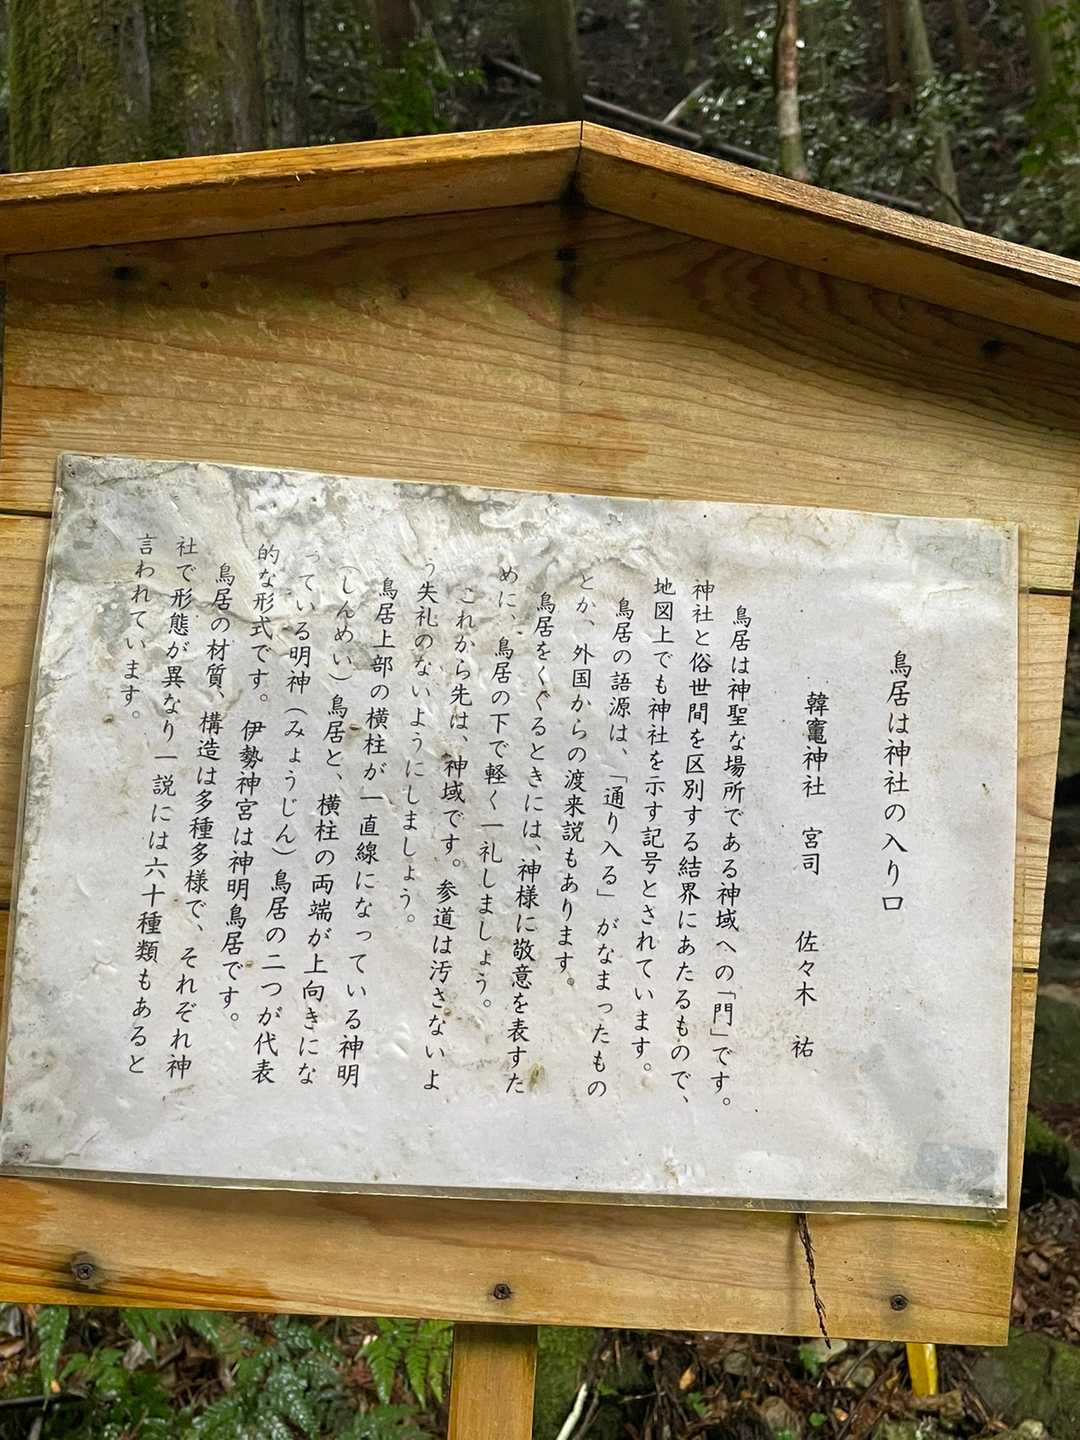 鳥居は神社の入り口
韓竈神社　宮司　佐々木　祐
鳥居は神聖な場所である神域への「門」です。
神社と俗世間を区別する結界にあたるもので、
地図上でも神社を示す記号とされています。
鳥居の語源は、「通り入る」がなまったもの
とか、外国からの渡来説もあります。
鳥居をくぐるときには、神様に敬意を表すた
めに、鳥居の下で軽く一礼しましょう。
これから先は、神域です。参道は汚さないよ
う失礼のないようにしましょう。
鳥居上部の横柱が一直線になっている神明
（しんめい）鳥居と、横柱の両端が上向きにな
っている明神（みょうじん）鳥居の二つが代表
的な形式です。伊勢神宮は神明鳥居です。
鳥居の材質、構造は多種多様で、それぞれ神
社で形態が異なり一説には六十種類もあると
言われています。